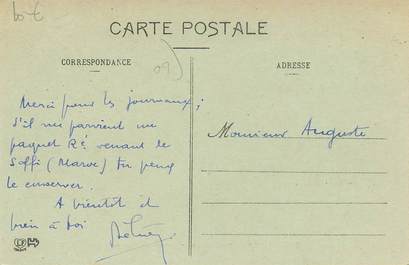 CARTE POSTALE
CORRESPONDANCE
ADRESSE
Merci pour les journaux ;
s'il me parvient un
paquet Ré venant de
Saffi (Maroc) tu peux
le conserver.
A bientôt et
bien à toi
Monsieur Auguste